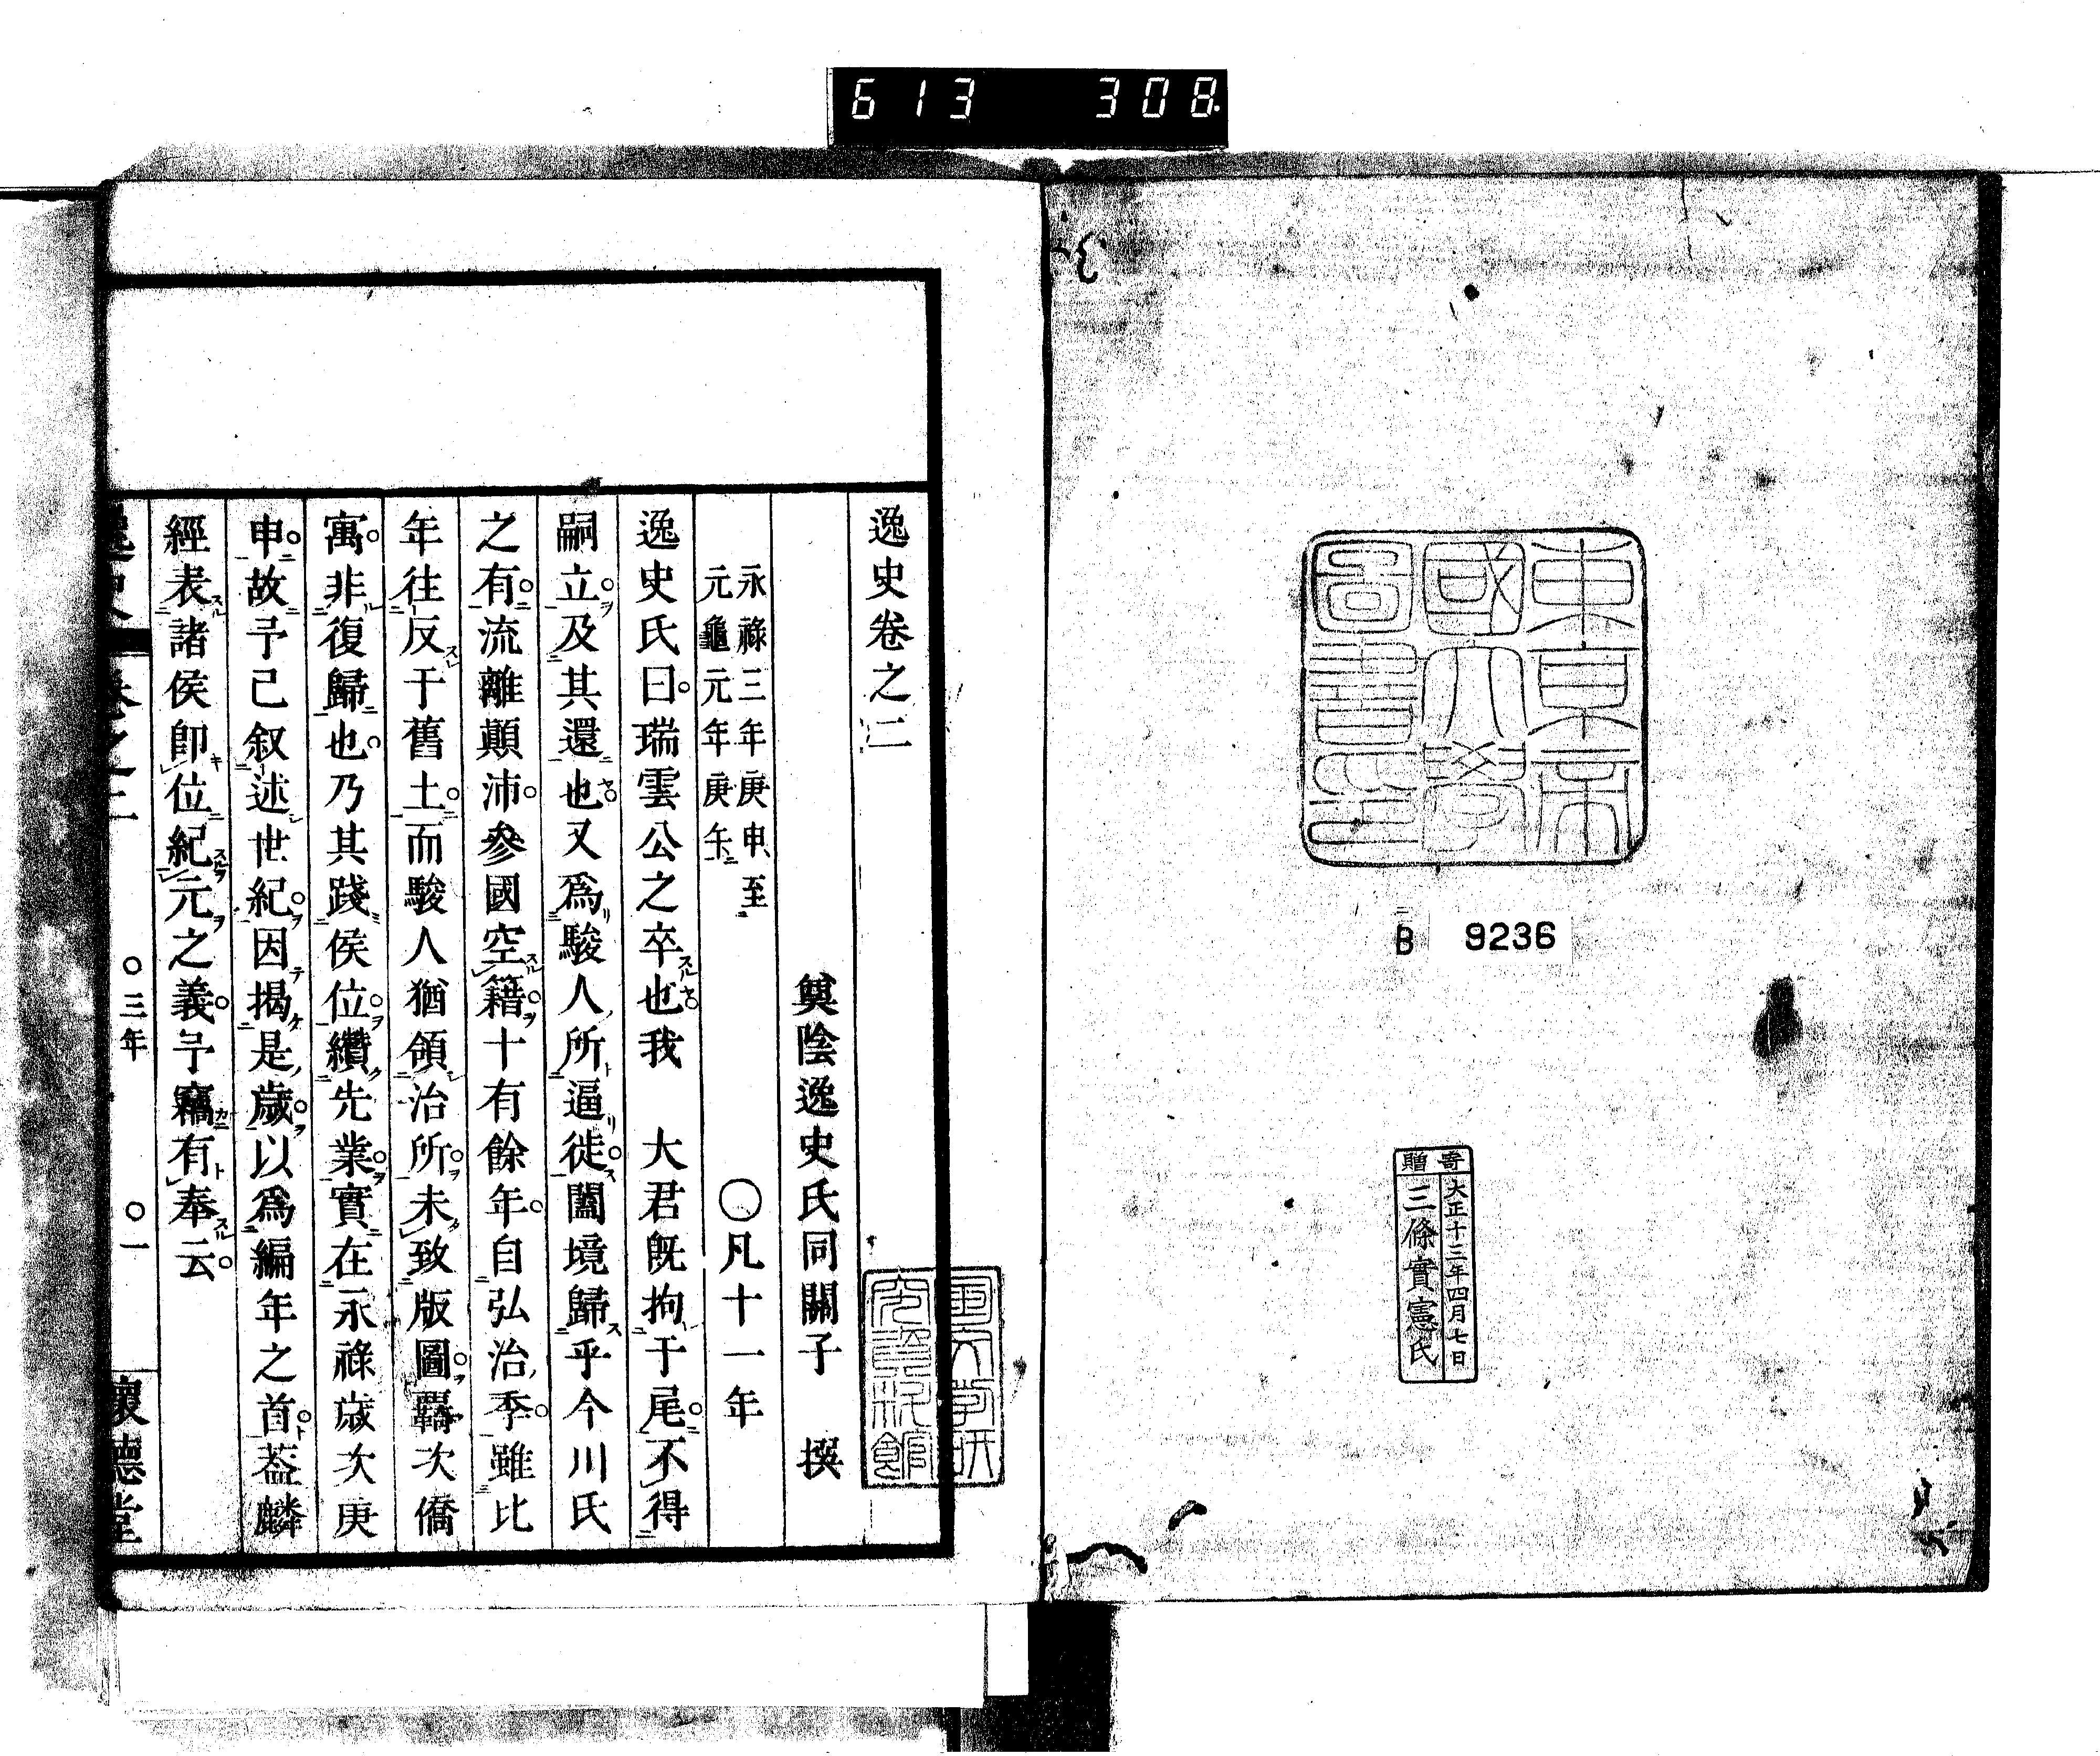 613 308
東京帝
國大學
圖書印
B 9236
寄贈
大正十三年四月七日
三條實憲氏
逸史卷之二
奠陰逸史氏同關子 撰
永祿三年庚申至
元龜元年庚午
〇凡十一年
逸史氏曰瑞雲公之卒也我 大君旣拘于尾不得
嗣立及其還也又爲駿人所逼徙闔境歸乎今川氏
之有流離顚沛參國空籍十有餘年自弘治季雖比
年往反于舊土而駿人猶領治所未致版圖羇次僑
寓非復歸也乃其踐侯位纘先業實在永祿歲次庚
申故予已叙述世紀因揭是歲以爲編年之首葢麟
經表諸侯卽位紀元之義予竊有奉云
逸史 卷之二 〇三年 〇一 懷德堂